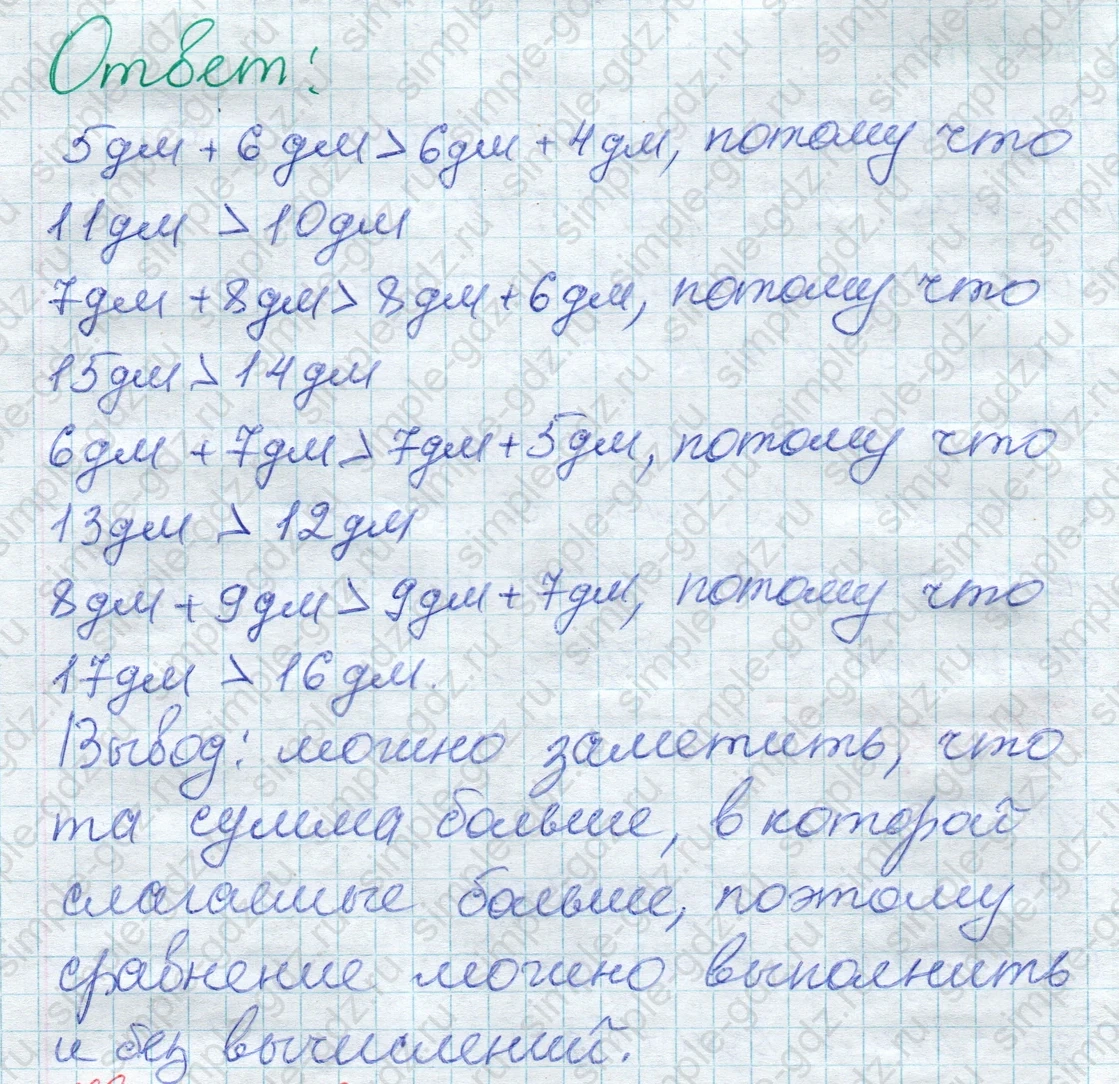 Ответ:
5дм + 6 дм > 6дм + 4 дм, потому что
11дм > 10дм
7дм + 8дм > 8 дм + 6 дм, потому что
15дм > 14 дм
6дм + 7дм > 7дм + 5дм, потому что
13дм > 12дм
8дм + 9дм > 9дм + 7дм, потому что
17дм > 16 дм.
Вывод: можно заметить, что
та сумма больше, в которой
слагаемые больше, поэтому
сравнение можно выполнить
и без вычислений.
simple-gdz.ru